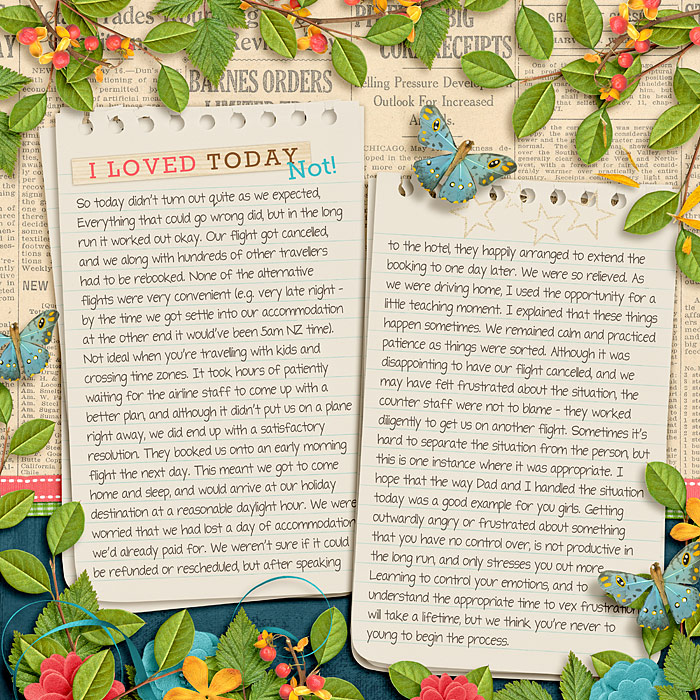 BIG
CORN RECEIPTS
BARNES ORDERS
Selling Pressure
Outlook For Increased
CHICAGO, May
NEW
I LOVED TODAY
Not!
So today didn't turn out quite as we expected,
Everything that could go wrong did, but in the long
run it worked out okay. Our flight got cancelled,
and we along with hundreds of other travellers
had to be rebooked. None of the alternative
flights were very convenient (e.g. very late night -
by the time we got settle into our accommodation
at the other end it would've been 5am NZ time).
Not ideal when you're travelling with kids and
crossing time zones. It took hours of patiently
waiting for the airline staff to come up with a
better plan, and although it didn't put us on a plane
right away, we did end up with a satisfactory
resolution. They booked us onto an early morning
flight the next day. This meant we got to come
home and sleep, and would arrive at our holiday
destination at a reasonable daylight hour. We were
worried that we had lost a day of accommodation
we'd already paid for. We weren't sure if it could
be refunded or rescheduled, but after speaking
to the hotel, they happily arranged to extend the
booking to one day later. We were so relieved. As
we were driving home, I used the opportunity for a
little teaching moment. I explained that these things
happen sometimes. We remained calm and practiced
patience as things were sorted. Although it was
disappointing to have our flight cancelled, and we
may have felt frustrated about the situation, the
counter staff were not to blame - they worked
diligently to get us on another flight. Sometimes it's
hard to separate the situation from the person, but
this is one instance where it was appropriate. I
hope that the way Dad and I handled the situation
today was a good example for you girls. Getting
outwardly angry or frustrated about something
that you have no control over, is not productive in
the long run, and only stresses you out more.
Learning to control your emotions, and to
understand the appropriate time to vex frustration
will take a lifetime, but we think you're never to
young to begin the process.